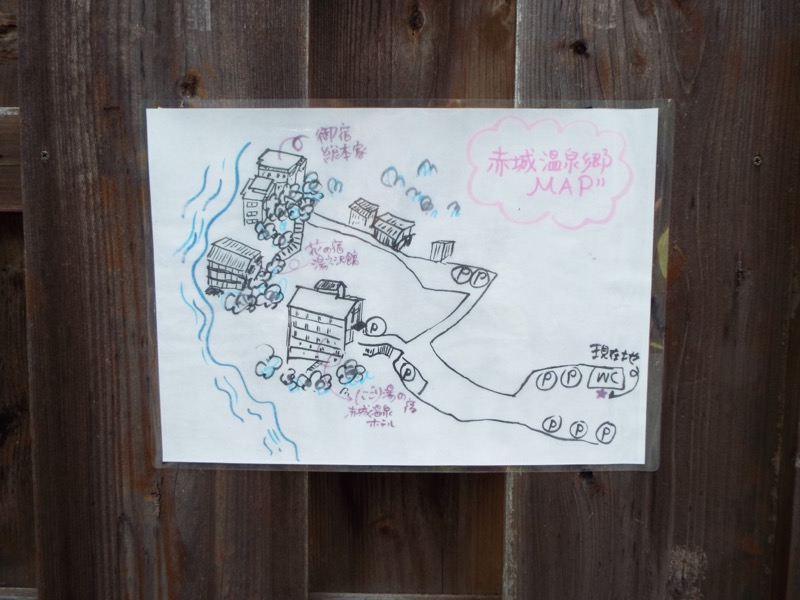 赤城温泉郷
MAP
御宿
総本家
花の宿
湯之沢館
P
P
P
P
にごり湯の宿
赤城温泉
ホテル
現在地
P
P
WC
P
P
P